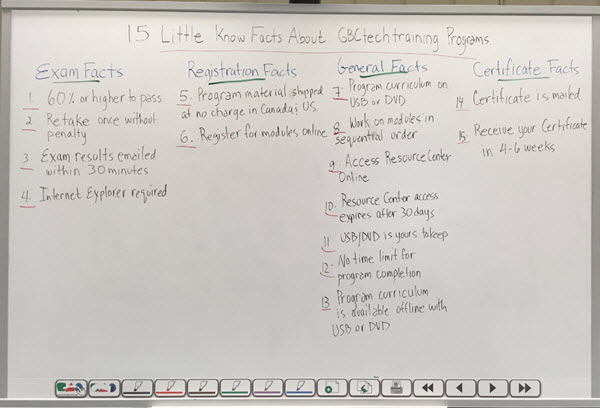 15 Little Know Facts About GBCtechtraining Programs
Exam Facts
1. 60% or higher to pass
2 Retake once without
penalty
3 Exam results emailed
within 30 minutes
4. Internet Explorer required
Registration Facts
5. Program material shipped
at no charge in Canada & US.
6. Register for modules online
General Facts
7 Program curriculum on
USB or DVD
8 Work on modules in
sequentral order
9. Access Resource Center
Online
10. Resource Center access
expires after 30 days
11 USB/DVD is yours to keep
12. No time limit for
program completion
13 Program curriculum
is available offline with
USB or DVD
Certificate Facts
14 Certificate is mailed
15 Receive your Certificate
in 4-6 weeks